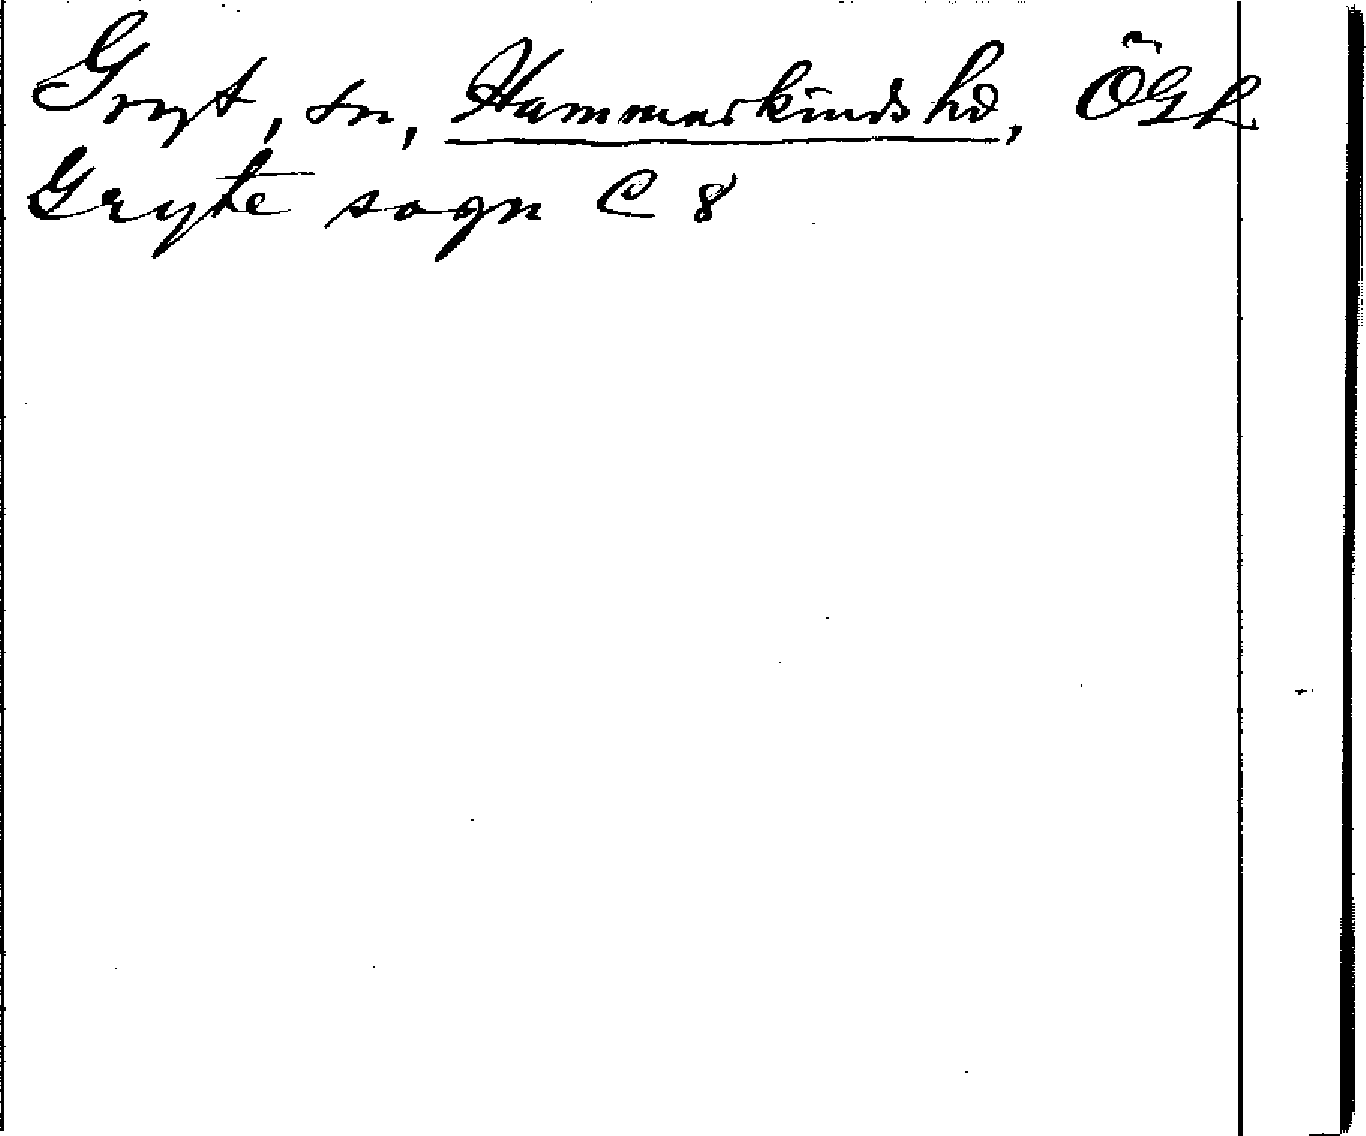 Gryt, sn, Hammarkinds hd, ÖGL
Gryte sogn C 8